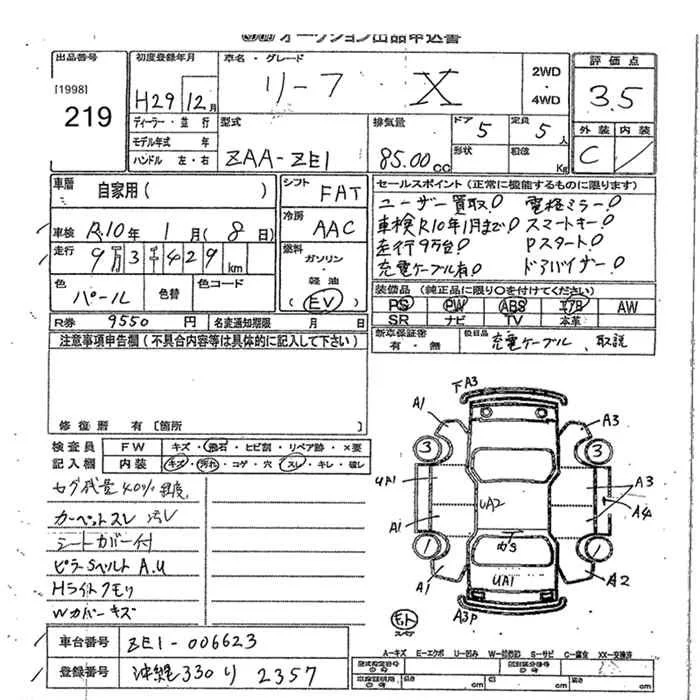 オークション出品申込書
出品番号
[1998]
219
初度登録年月
H29年 12月
ディーラー・並行
モデル年式 年
ハンドル 左・右
車名・グレード
リーフ X
2WD
・
4WD
型式
ZAA-ZE1
排気量
85.00cc
ドア
5
定員
5人
形状
積載
Kg
評価点
3.5
外装 内装
C
車歴
自家用( )
車検 R.10年 1月(8日)
走行 9万3千429km
色
パール
色替
色コード
シフト
FAT
冷房
AAC
燃料
ガソリン
・
軽油
(EV)
セールスポイント(正常に機能するものに限ります)
ユーザー買取! 電格ミラー!
車検R10年1月まで! スマートキー!
走行9万台! Pスタート!
充電ケーブル有! ドアバイザー!
装備品(純正品に限り○を付けてください)
PS PW ABS エアB AW
SR ナビ TV 本革
新車保証書
有・無
後日品
充電ケーブル、取説
R券 9550円
名変通知期限 月 日
注意事項申告欄(不具合内容等は具体的に記入して下さい)
修復歴 有〔箇所 〕
検査員
記入欄
FW キズ・飛石・ヒビ割・リペア跡・×要
内装 キズ・汚れ・コゲ・穴・スレ・キレ・破レ
セグ残量40%程度
カーペットスレ 汚レ
シートカバー付
ピラーSベルトA.U
Hライトクモリ
Wカバーキズ
下A3
A1
A3
3
3
UA1
A3
UA2
A4
A1
1
1
A1
A2
UA1
A3P
スペア
車台番号 ZE1-006623
登録番号 沖縄330り2357
A-キズ E-エクボ U-凹み W-補修跡 S-サビ C-腐食 XX-交換済